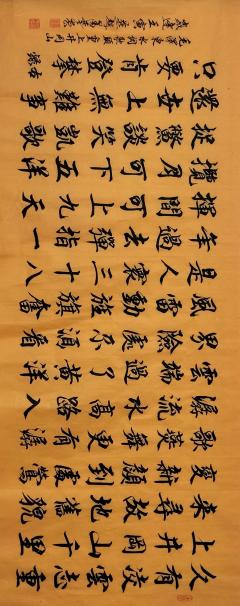 久有凌雲志重
上井岡山千里
來尋故地舊貌
變新顏到處鶯
歌燕舞更有潺
潺流水高路入
雲端過了黃洋
界險處不須看
風雷動旌旗奮
是人寰三十八
年過去彈指一
揮間可上九天
攬月可下五洋
捉鱉談笑凱歌
還世上無難事
只要肯登攀
毛澤東水調歌頭重上井岡山